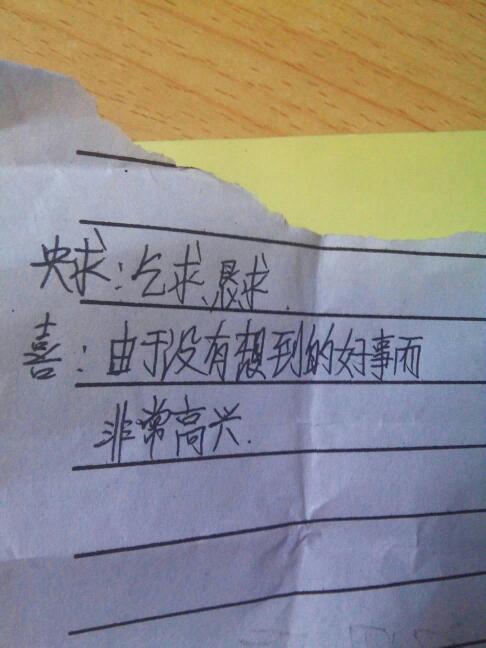 央求：乞求、恳求.
喜：由于没有想到的好事而
非常高兴.